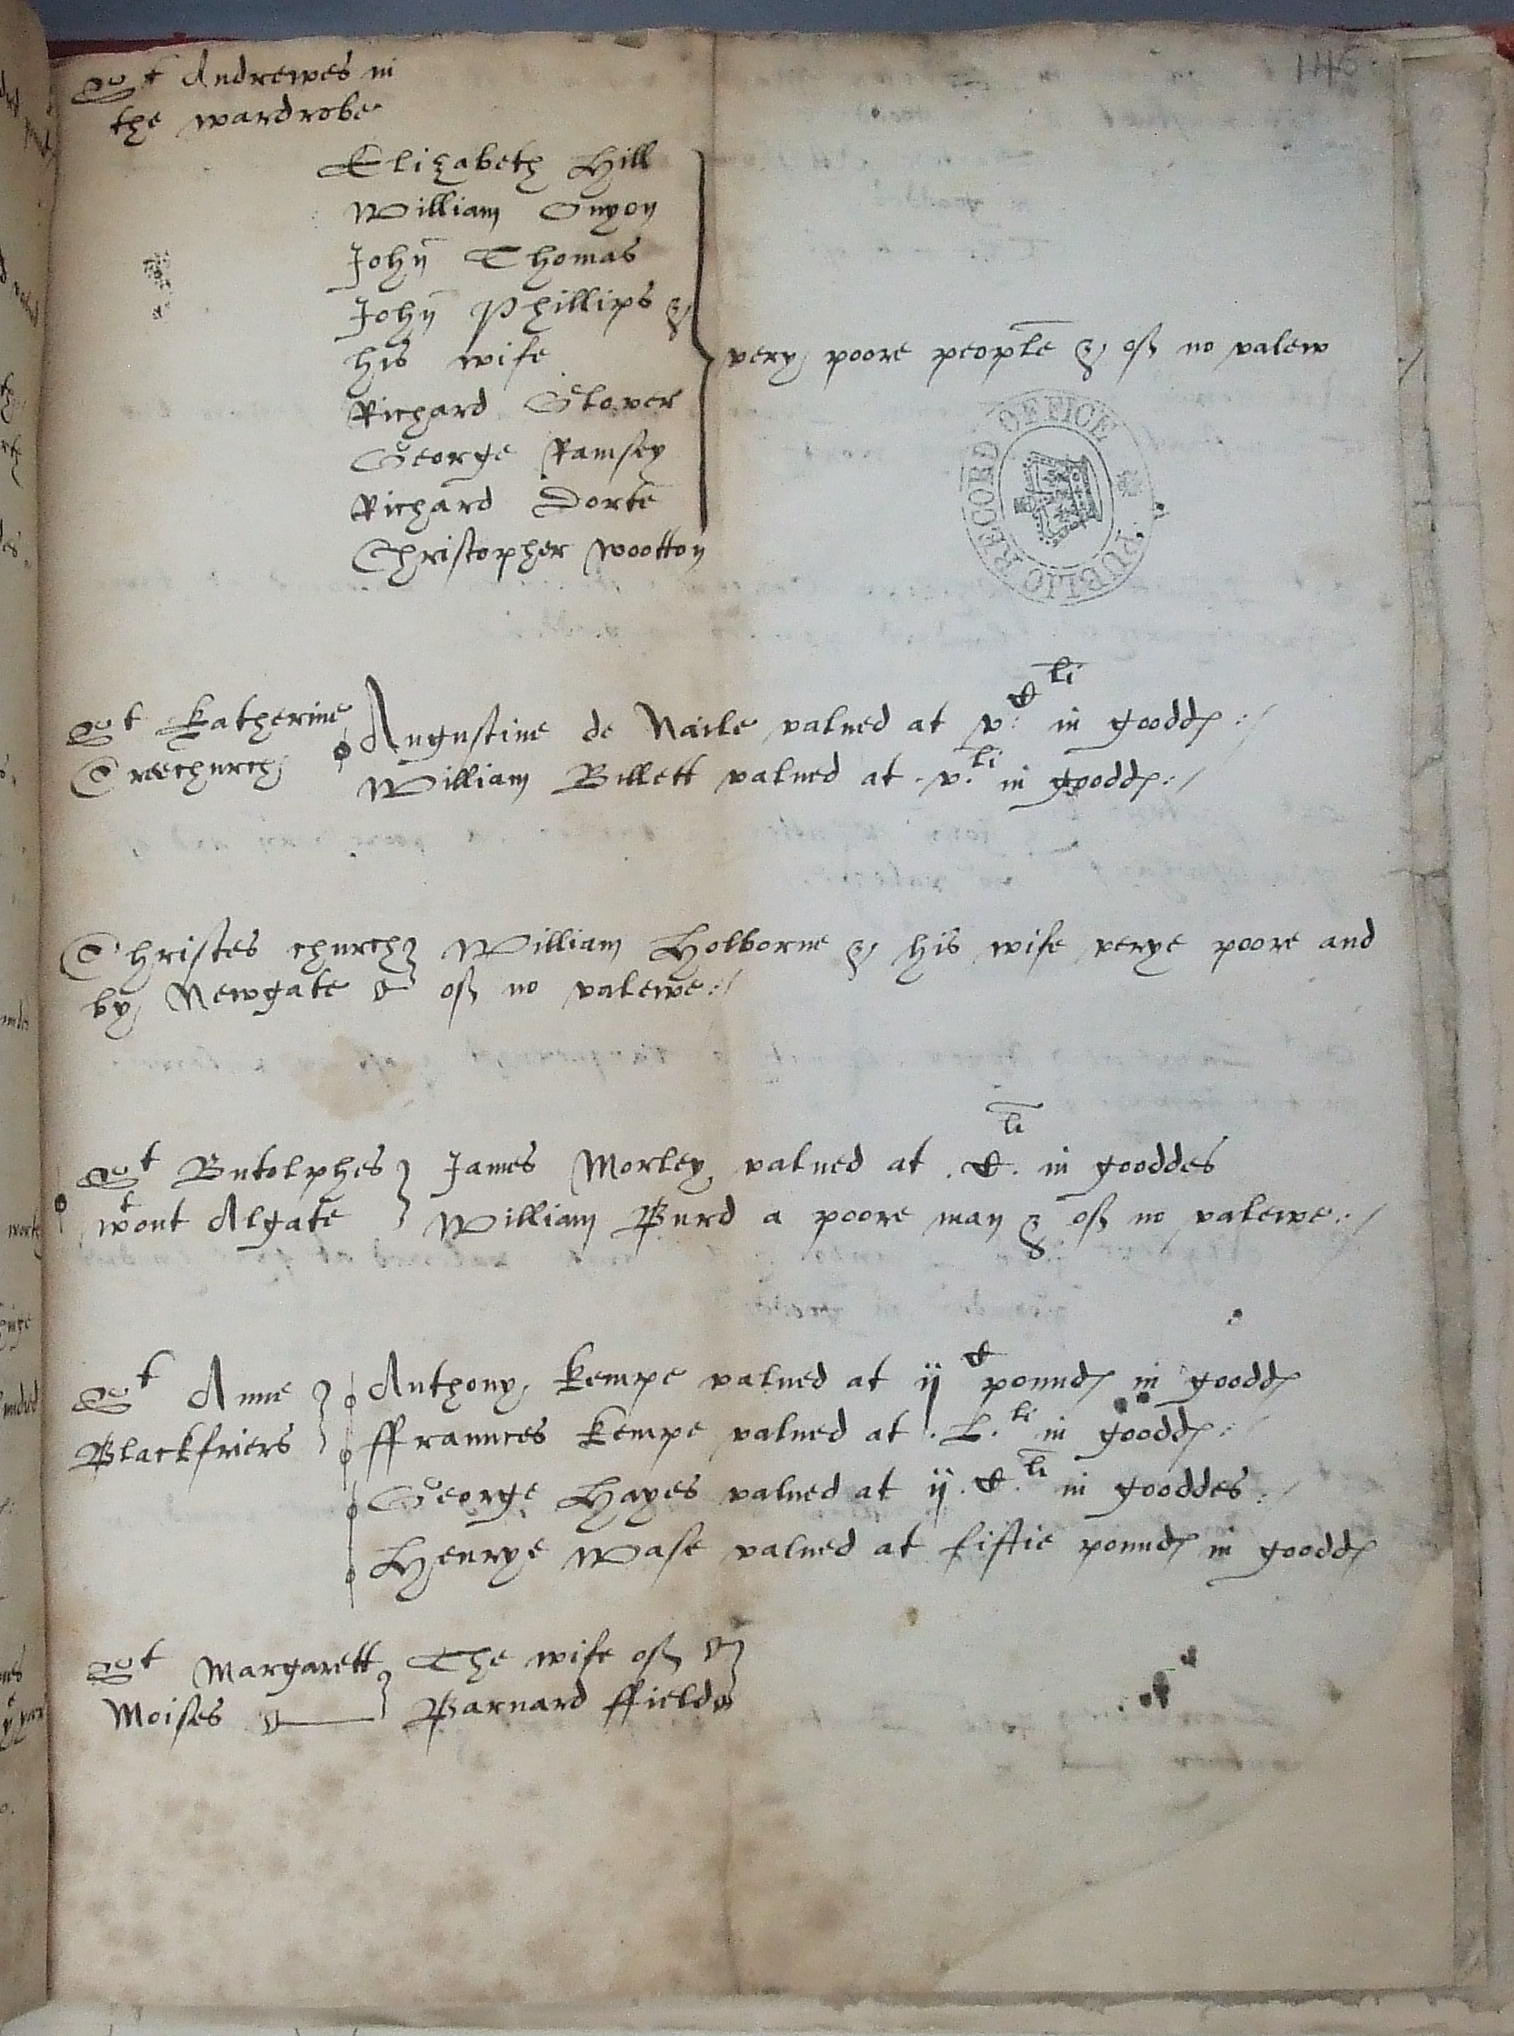 146
St Andrewes in
the wardrobe
Elizabeth Hill
William Onyon
John Thomas
John Phillips &
his wife
very poore people & of no valew
Richard Glover
George Ramsey
Richard Dorte
Christopher Wootton
PUBLIC RECORD OFFICE
St Katherine Augustine de Naile valued at v C li in goodes
Creechurch William Billett valued at .v. li in goodes
Christes church William Holborne & his wife verye poore and
by Newgate of no valewe
St Butolphes James Morley valued at .C. li in gooddes
wtout Algate William Burd a poore man & of no valewe
St Anne Anthony Kempe valued at ij C poundes in goodes
Blackfriers ffraunces Kempe valued at .L. li in goodes
George Hayes valued at ij .C. li in gooddes
Henrye Wase valued at fiftie poundes in goodes
St Margarett The wife of
Moises Barnard ffields